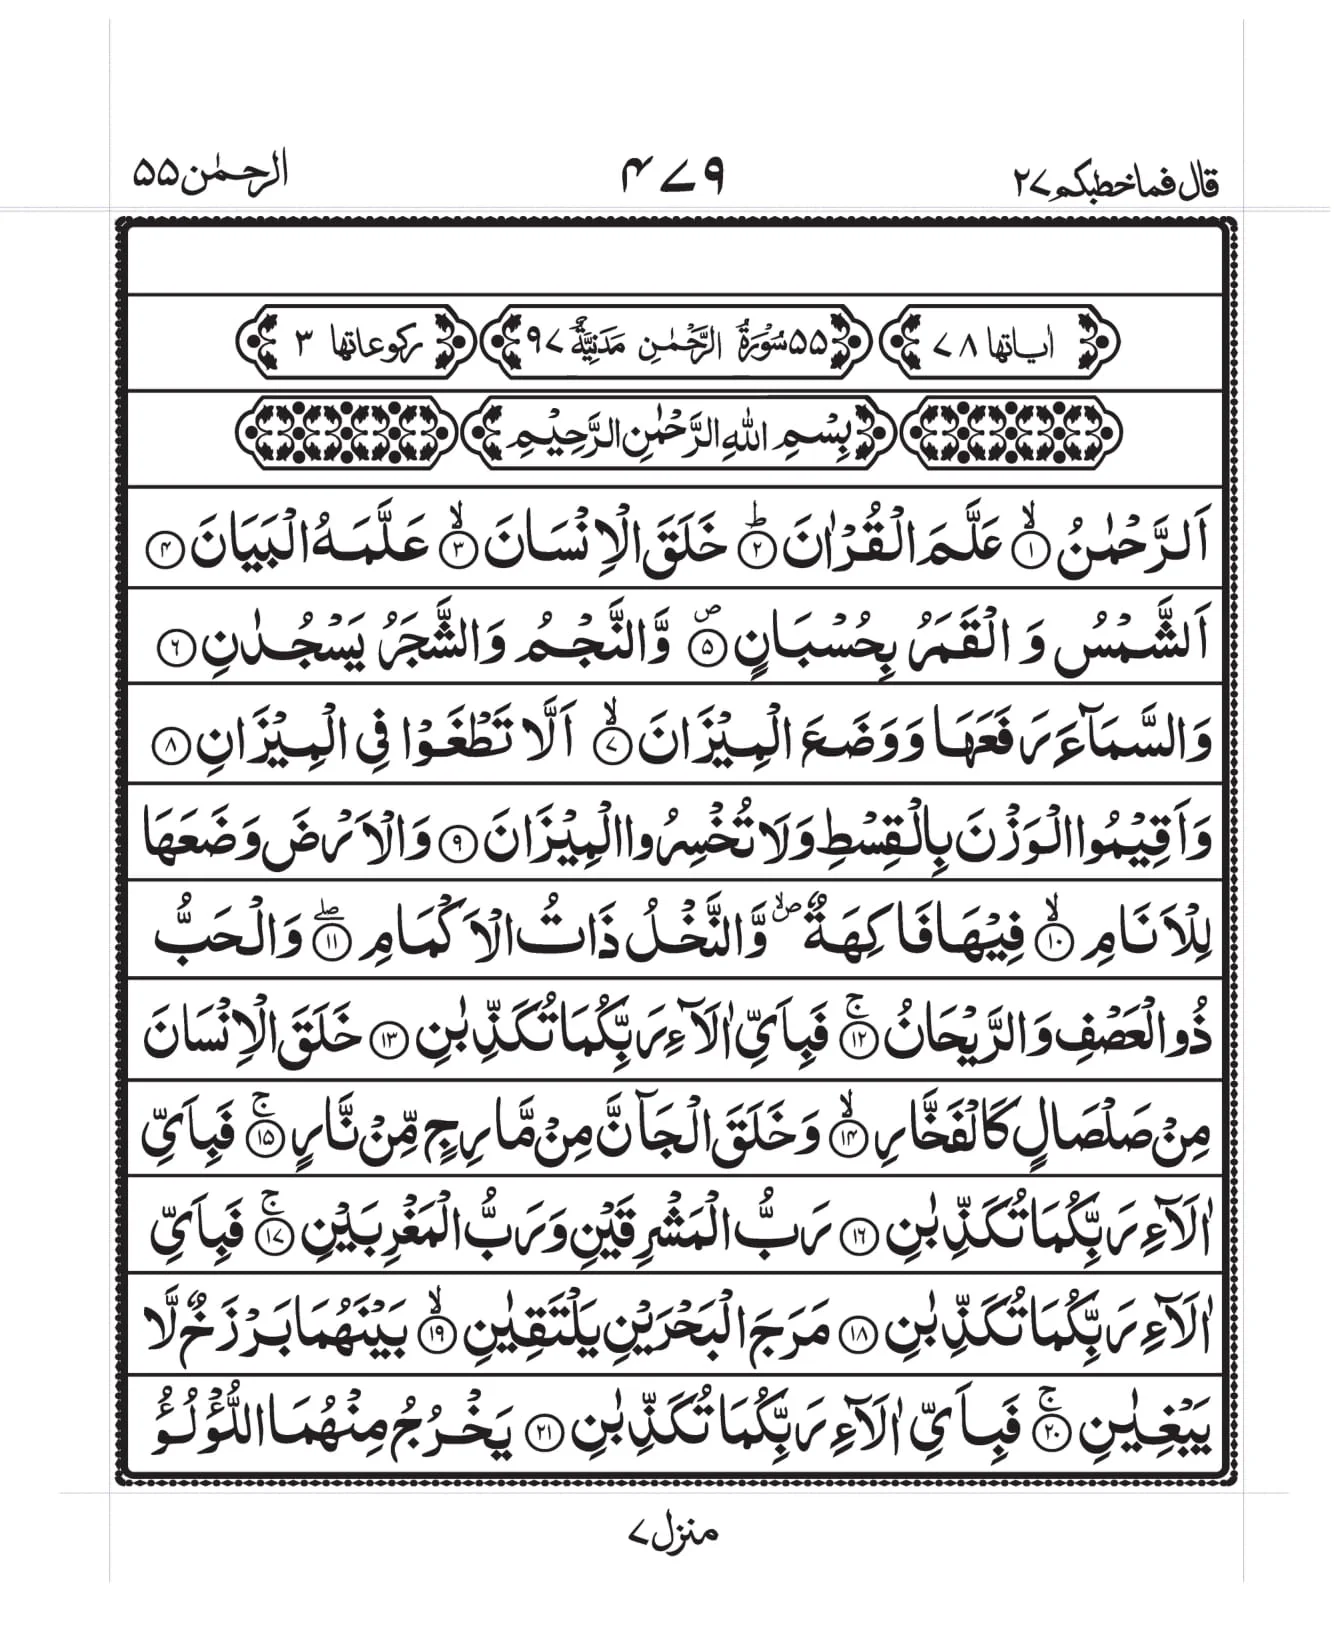 قال فما خطبکم ۲۷ ۴۷۹ الرحمٰن ۵۵
اٰیاتها ۷۸ ۵۵ سُوْرَةُ الرَّحْمٰنِ مَدَنِیَّةٌ ۹۷ رکوعاتها ۳
بِسْمِ اللهِ الرَّحْمٰنِ الرَّحِیْمِ
اَلرَّحْمٰنُ ۙ﴿۱﴾ عَلَّمَ الْقُرْاٰنَ ؕ﴿۲﴾ خَلَقَ الْاِنْسَانَ ۙ﴿۳﴾ عَلَّمَهُ الْبَیَانَ ﴿۴﴾
اَلشَّمْسُ وَ الْقَمَرُ بِحُسْبَانٍ ۪﴿۵﴾ وَّالنَّجْمُ وَالشَّجَرُ یَسْجُدٰنِ ﴿۶﴾
وَالسَّمَآءَ رَفَعَهَا وَوَضَعَ الْمِیْزَانَ ۙ﴿۷﴾ اَلَّا تَطْغَوْا فِی الْمِیْزَانِ ﴿۸﴾
وَاَقِیْمُوا الْوَزْنَ بِالْقِسْطِ وَلَا تُخْسِرُوا الْمِیْزَانَ ﴿۹﴾ وَالْاَرْضَ وَضَعَهَا
لِلْاَنَامِ ۙ﴿۱۰﴾ فِیْهَا فَاكِهَةٌ ۪ۙ وَّالنَّخْلُ ذَاتُ الْاَكْمَامِ ۖ﴿۱۱﴾ وَالْحَبُّ
ذُو الْعَصْفِ وَالرَّیْحَانُ ۚ﴿۱۲﴾ فَبِاَیِّ اٰلَآءِ رَبِّكُمَا تُكَذِّبٰنِ ﴿۱۳﴾ خَلَقَ الْاِنْسَانَ
مِنْ صَلْصَالٍ كَالْفَخَّارِ ۙ﴿۱۴﴾ وَخَلَقَ الْجَآنَّ مِنْ مَّارِجٍ مِّنْ نَّارٍ ۚ﴿۱۵﴾ فَبِاَیِّ
اٰلَآءِ رَبِّكُمَا تُكَذِّبٰنِ ﴿۱۶﴾ رَبُّ الْمَشْرِقَیْنِ وَرَبُّ الْمَغْرِبَیْنِ ۚ﴿۱۷﴾ فَبِاَیِّ
اٰلَآءِ رَبِّكُمَا تُكَذِّبٰنِ ﴿۱۸﴾ مَرَجَ الْبَحْرَیْنِ یَلْتَقِیٰنِ ۙ﴿۱۹﴾ بَیْنَهُمَا بَرْزَخٌ لَّا
یَبْغِیٰنِ ۚ﴿۲۰﴾ فَبِاَیِّ اٰلَآءِ رَبِّكُمَا تُكَذِّبٰنِ ﴿۲۱﴾ یَخْرُجُ مِنْهُمَا اللُّؤْلُؤُ
منزل ۷